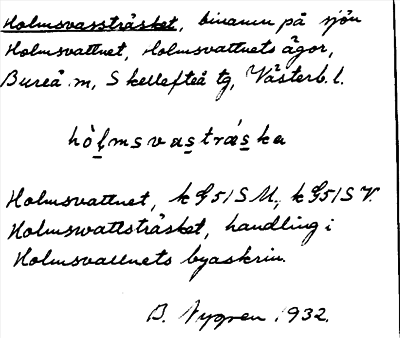 Holmsvassträsket, binamn på sjön
Holmsvattnet, Holmsvattnets ägor,
Bureå sn, Skellefteå tg, Västerb. l.
hòl̲msvas̲trás̲ka
Holmsvattnet, k G51 S M., k G51 S V.
Holmswattsträsket, handling i
Holmsvattnets byaskrin.
B. Nygren 1932.